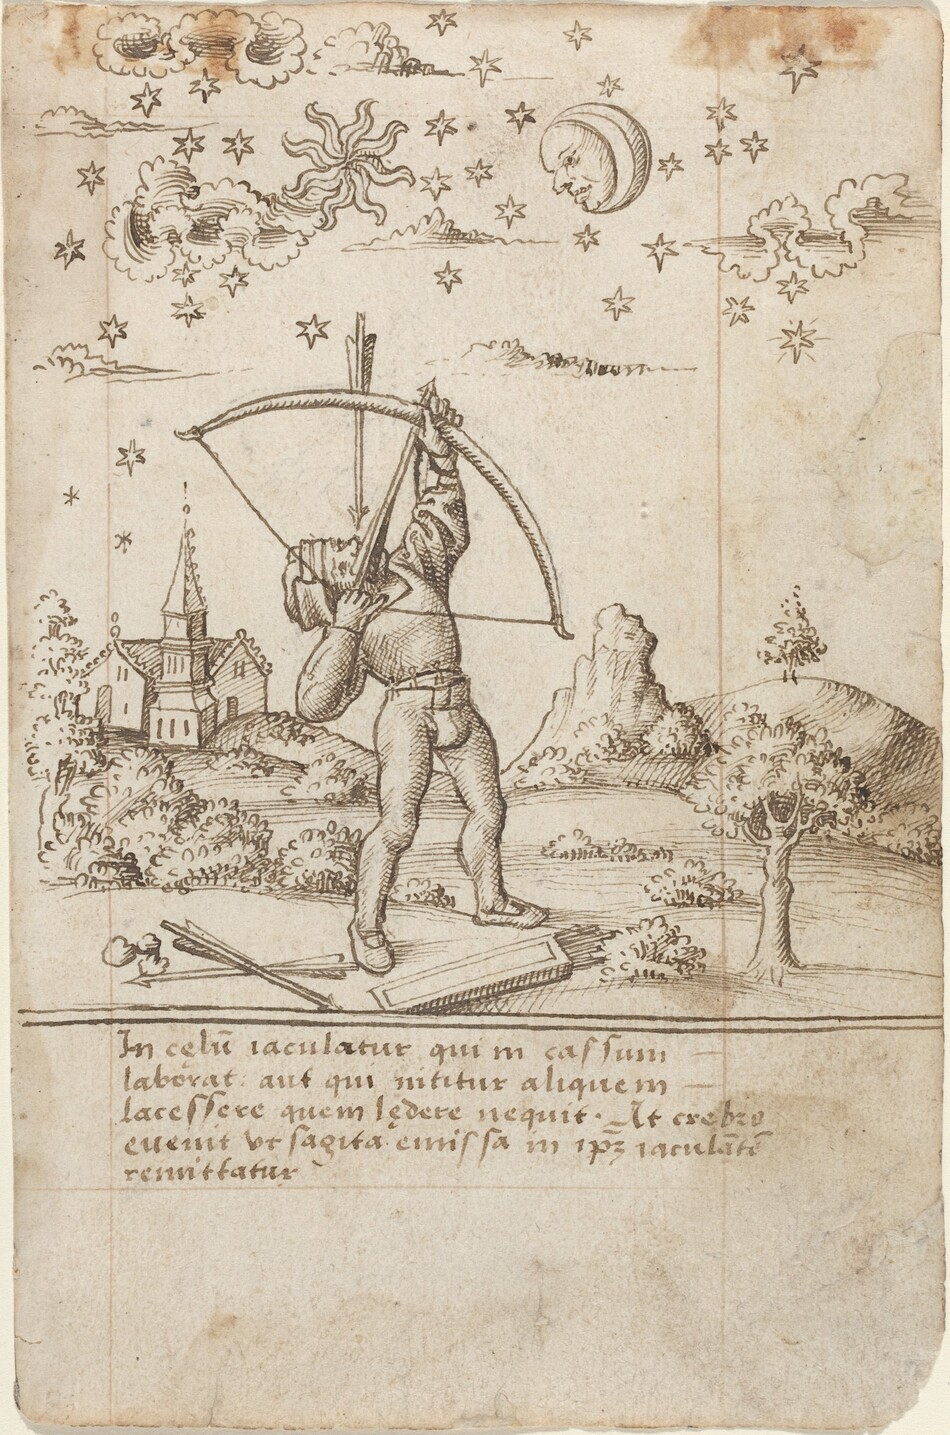 In cęlū iaculatur qui in cassum
laborat: aut qui nititur aliquem
lacessere quem lędere nequit. At crebro
evenit vt sagita emissa in ipꝫ iaculātē
remittatur